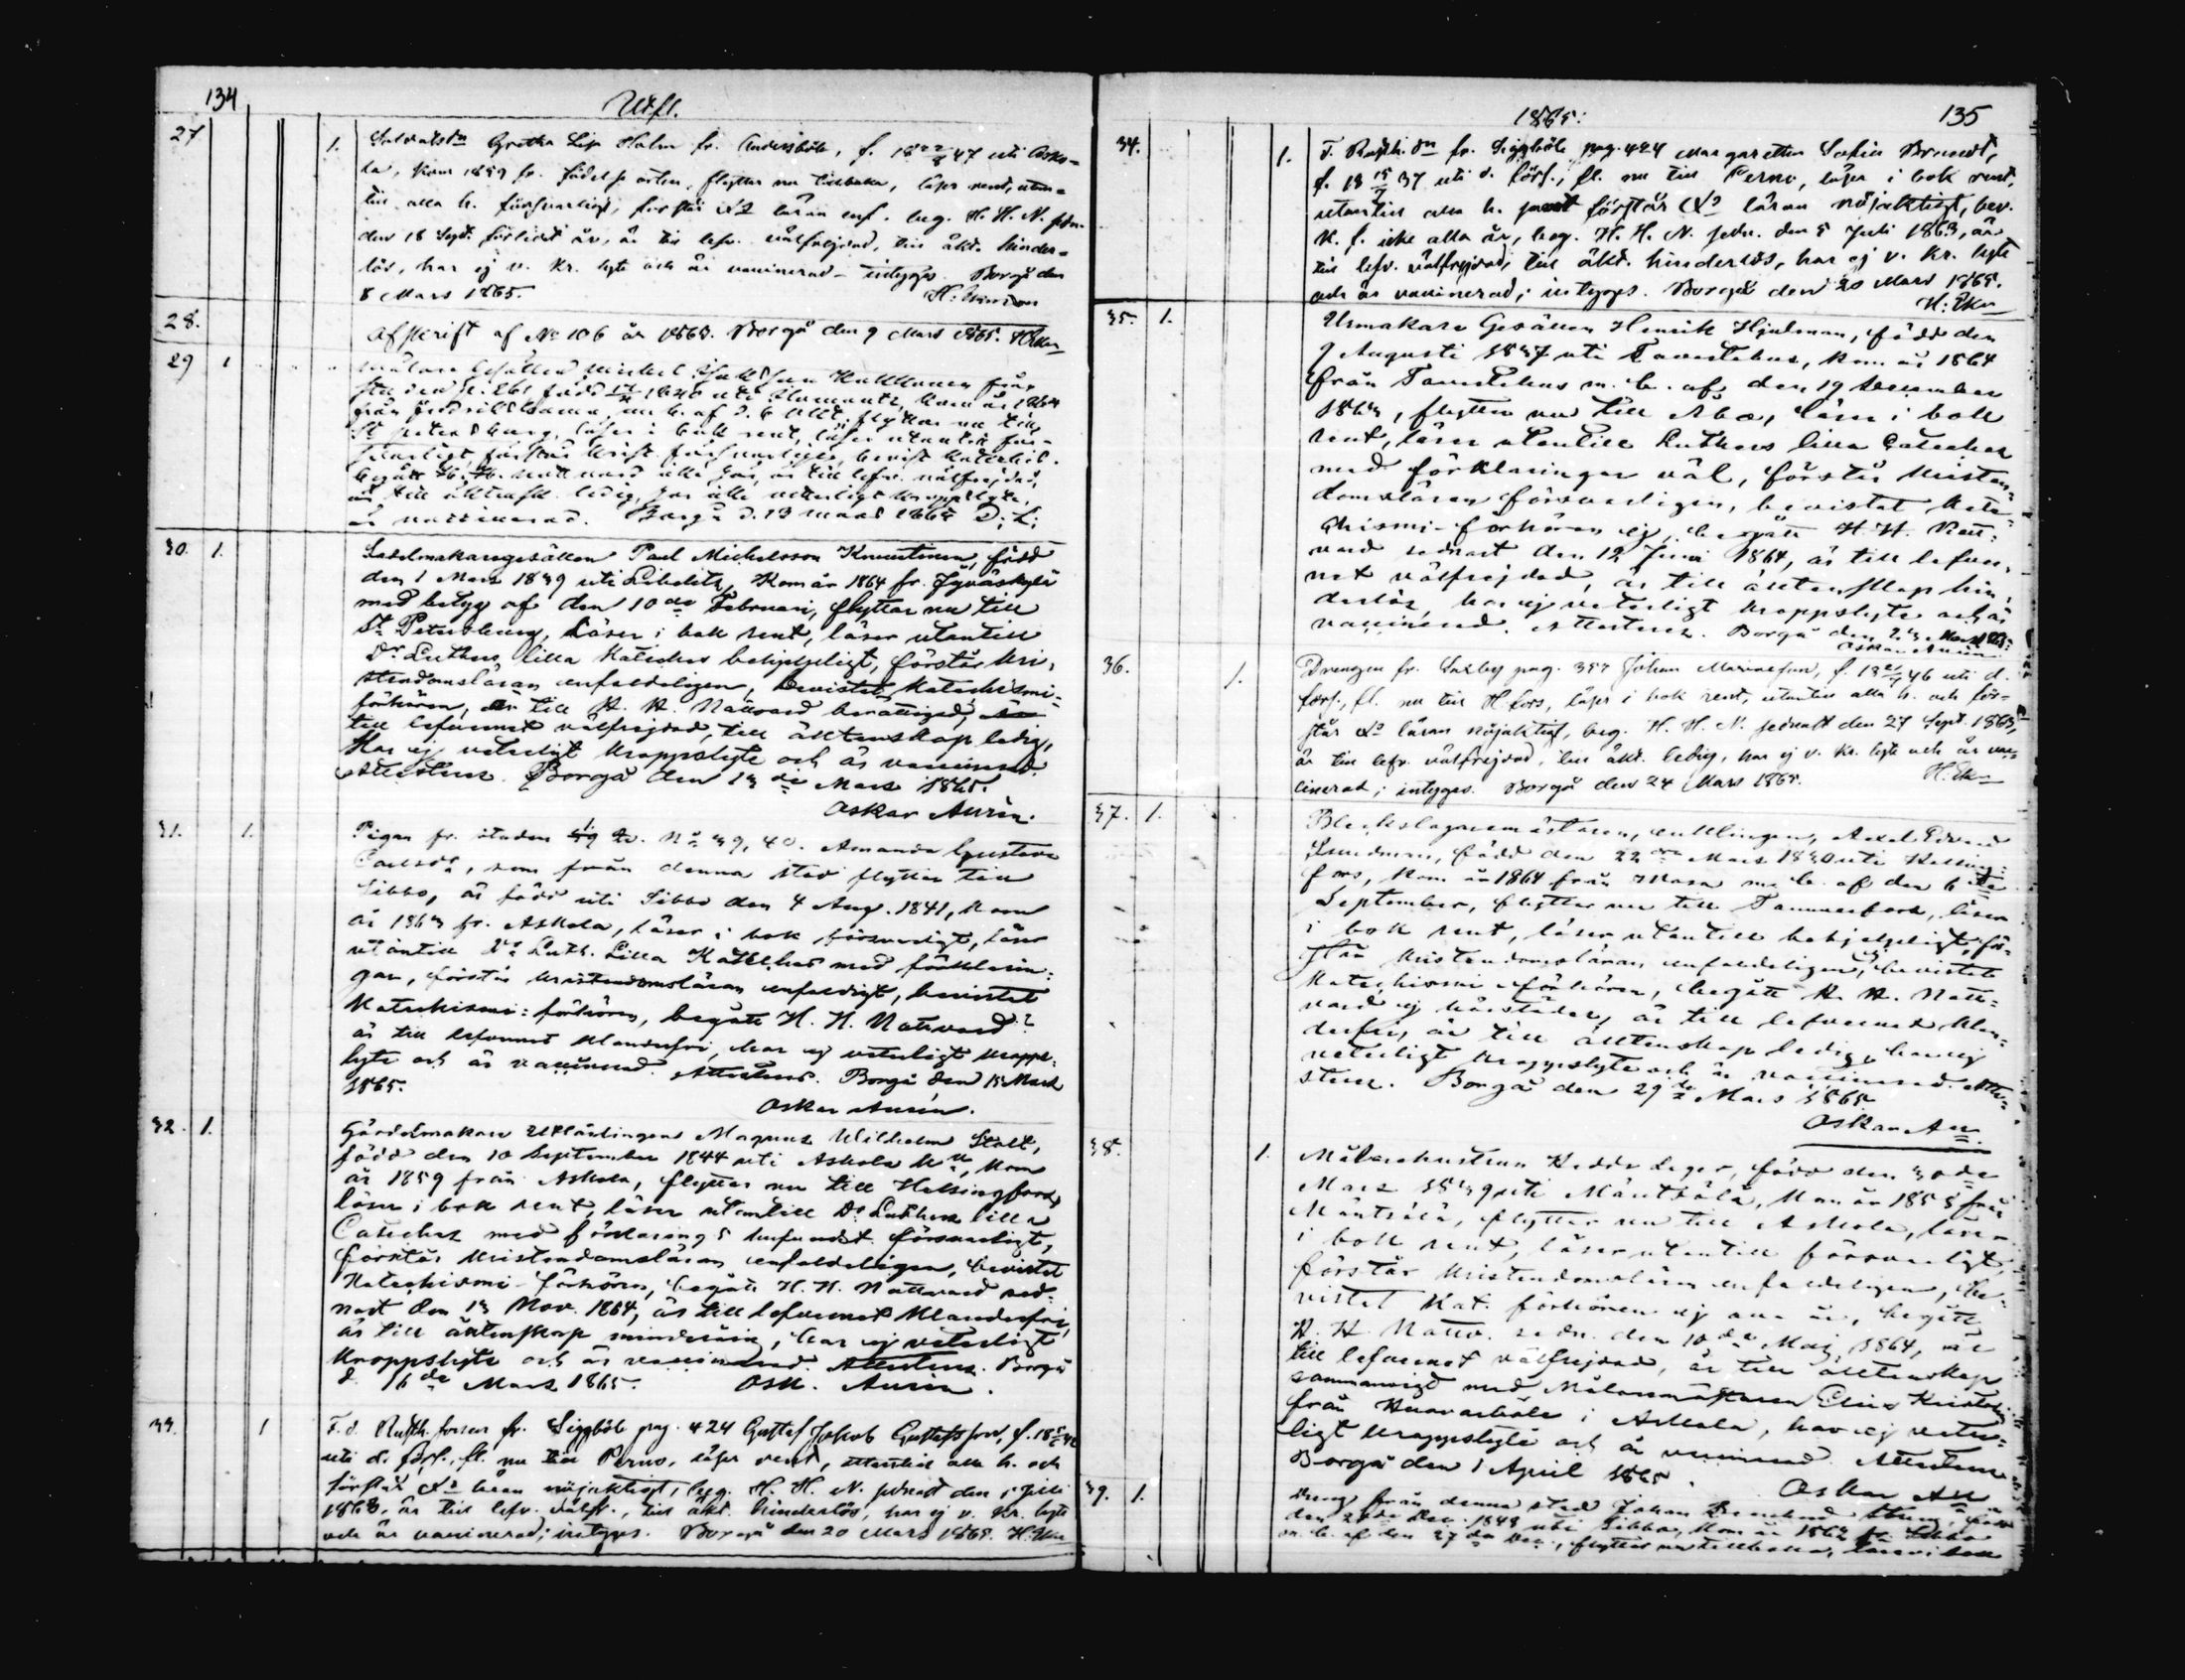 134
Utfl.
27. 1. Soldatsdn Gretha Lisa Holm fr. Andersböle, f. 18 47 uti Asko-
la, kom 1859 fr. födelse orten, flyttar nu tillbaka, läser rent, utan-
till alla h. försvarligt, förstår Xd läran enf. beg. H. H. N. sedn.
den 18 Sept. förlidet år, är till lefv. välfrejdad, till äkt. hinder-
lös, har ej v. kr. lyte och är vaccinerad - intygas. Borgå den
8 Mars 1865.
28. Afskrift af No 106 år 1863. Borgå den 9 Mars 1865.
29 1 Målare Gesällen Michel Hukkanen från
från Fredrikshamn, m. b. af d. 6 Okt, flyttar nu till
St Petersburg, läser i bok rent, läser utantill för-
svarligt, förstår krist. försvarligen, bevist. Katechis.
begått H. H. nattvard är till lefv. välfrejdad,
är till äktensk. ledig, har icke vetterligt kroppslyte,
är vaccinerad. Borgå d. 13 mars 1865 D. L.
30. 1. Sadelmakaregesällen Paul Michelsson Knuutinen, född
den 1 Mars 1839 uti Libelitz, Kom år 1864 fr. Jyväskylä
med betyg af den 10de Februari, flyttar nu till
St Petersburg, Läser i bok rent, läser utantill
Dr Luthers lilla Katechес behjelpligt, förstår kri-
stendomsläran enfaldeligen, bevistat Katechismi-
förhören, är till H. H. Nattvard berättigad,
till lefvernet välfrejdad, till äktenskap ledig,
Har ej veterligt kroppslyte och är vaccinerad.
Attesteras. Borgå den 13de Mars 1865.
Oskar Aurén.
31. 1. Pigan fr. staden No 39, 40. Amanda Gustava
Carlsdr, som från denna stad flyttar till
Sibbo, är född uti Sibbo den 4 Aug. 1841, kom
år 1863 fr. Askola, läser i bok försvarligt, läser
utantill Dr Luth. Lilla Katekes med förklarin-
gar, förstår kristendomsläran enfaldigt, bevistat
Katechismi-förhören, begått H. H. Nattvard
är till lefvernet klanderfri, har ej veterligt kropps-
lyte och är vaccinerad. Attesteras. Borgå den 15 Mars
1865.
Oskar Aurén.
32. 1. Gördelmakare Utlärlingen Magnus Wilhelm Stolt,
född den 10 September 1844 uti Askola, kom
år 1859 från Askola, flyttar nu till Helsingfors,
läser i bok rent, läser utantill Dr Luthers lilla
Cateches med förklaring försvarligt,
förstår kristendomsläran enfaldeligen, bevistat
Katechismi-förhören, begått H. H. Nattvard sed-
nast den 13 Nov. 1864, är till lefvernet klanderfri,
är till äktenskap minderårig, har ej veterligt
kroppslyte och är vaccinerad. Attesteras. Borgå
d. 16de Mars 1865. Osk. Aurén.
33. 1 F. d. fr. Siggböle pag. 424 Gustaf Jakob Gustafsson, f.
uti d. förs., fl. nu till Perno, läser rent, utantill alla h. och
förstår Xd läran nöjaktigt, beg. H. H. N. sednast den 5 Juli
1863, är till lefv. välfr., till äkt. hinderlös, har ej v. kr. lyte
och är vaccinerad; intygas. Borgå den 20 Mars 1865. H. Ekm
1865. 135
34. 1. F. dn fr. Siggböle pag. 424 Margaretha Sofia Brandt,
f. 18 37 uti d. förs., fl. nu till Perno, läser i bok rent,
utantill alla h. förstår Xd läran nöjaktigt, bev.
K. f. icke alla år, beg. H. H. N. sedn. den 5 Juli 1863, är
till lefv. välfrejdad, till äkt. hinderlös, har ej v. kr. lyte
och är vaccinerad; intygas. Borgå den 20 Mars 1865.
H. Ekm
35. 1. Urmakare Gesällen Henrik Hjulman, född den
9 Augusti 1837 uti Tavastehus, kom år 1864
från Tavastehus m. b. af den 19 December
1863, flyttar nu till Åbo, läser i bok
rent, läser utantill Luthers lilla Cateches
med förklaringar väl, förstår kristen-
domsläran försvarligen, bevistat Kate-
chismi-förhören ej, begått H. H. Natt-
vard sednast den 12 Juni 1864, är till lefver-
net välfrejdad, är till äktenskap hin-
derlös, har ej veterligt kroppslyte och är
vaccinerad. Attesteras. Borgå den 23 Mars 65.
Oskar Aurén
36. 1. Drengen fr. Saxby pag. 357 Johan f. 46 uti d.
förs., fl. nu till H.fors, läser i bok rent, utantill alla h. och för-
står Xd läran nöjaktigt, beg. H. H. N. sednast den 27 Sept. 1863,
är till lefv. välfrejdad, till äkt. ledig, har ej v. kr. lyte och är vac-
cinerad; intygas. Borgå den 24 Mars 1865. H. Ekm
37. 1. Bleckslagaremästaren, enklingen, Axel Edvard
född den 22dra Mars 1830 uti Helsing-
fors, kom år 1864 från Wasa m. b. af den 6te
September, flyttar nu till Tammerfors, läser
i bok rent, läser utantill behjelpligt, för-
står kristendomsläran enfaldeligen, bevistat
Katechismi förhören, begått H. H. Natt-
vard ej härstädes, är till lefvernet klan-
derfri, är till äktenskap ledig, har ej
veterligt kroppslyte och är vaccinerad. Atte-
steras. Borgå den 29de Mars 1865.
Oskar Au
38. 1. Målarehustrun Hedda Leger, född den 30de
Mars 1839 uti Mäntsälä, kom år 1858 från
Mäntsälä, flyttar nu till Askola, läser
i bok rent, läser utantill försvarligt,
förstår kristendomsläran enfaldeligen, be-
vistat Kat. förhören ej begått
H. H. Nattv. sedn. den 10de Maj 1864, är
till lefvernet välfrejdad, är till äktenskap
sammanvigd med Målaremästaren
från i Askola, har ej veter-
ligt kroppslyte och är vaccinerad. Attesteras
Borgå den 1 April 1865. Oskar Au
39. 1. Dreng från denna stad Johan född
den Dec. 1843 uti Sibbo, kom år 1862 fr. Sibbo
m. b. af den 27de Dec., flyttar nu tillbaka, läser i bok